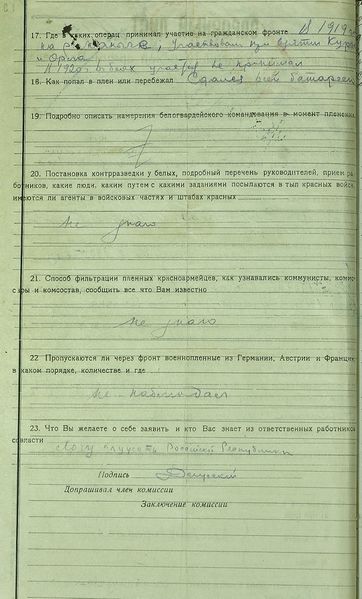 17. Где в каких операц принимал участие на гражданском фронте В 1919
участвовал при взятии Курска
и Орла,
в 1920 г. в боях участия не принимал
18. Как попал в плен или перебежал Сдался всей батареей
19. Подробно описать намерения белогвардейского командования в момент пленения
20. Постановка контрразведки у белых, подробный перечень руководителей, прием ра
ботников, какие люди, каким путем с какими заданиями посылаются в тыл красных войск
имеются ли агенты в войсковых частях и штабах красных
Не знаю
21. Способ фильтрации пленных красноармейцев, как узнавались коммунисты, комис
сары и комсостав, сообщить все что Вам известно
Не знаю
22 Пропускаются ли через фронт военнопленные из Германии, Австрии и Франции
в каком порядке, количестве и где
Не наблюдал
23. Что Вы желаете о себе заявить и кто Вас знает из ответственных работников
совласти
Хочу служить Российской Республике
Подпись
Допрашивал член комиссии
Заключение комиссии